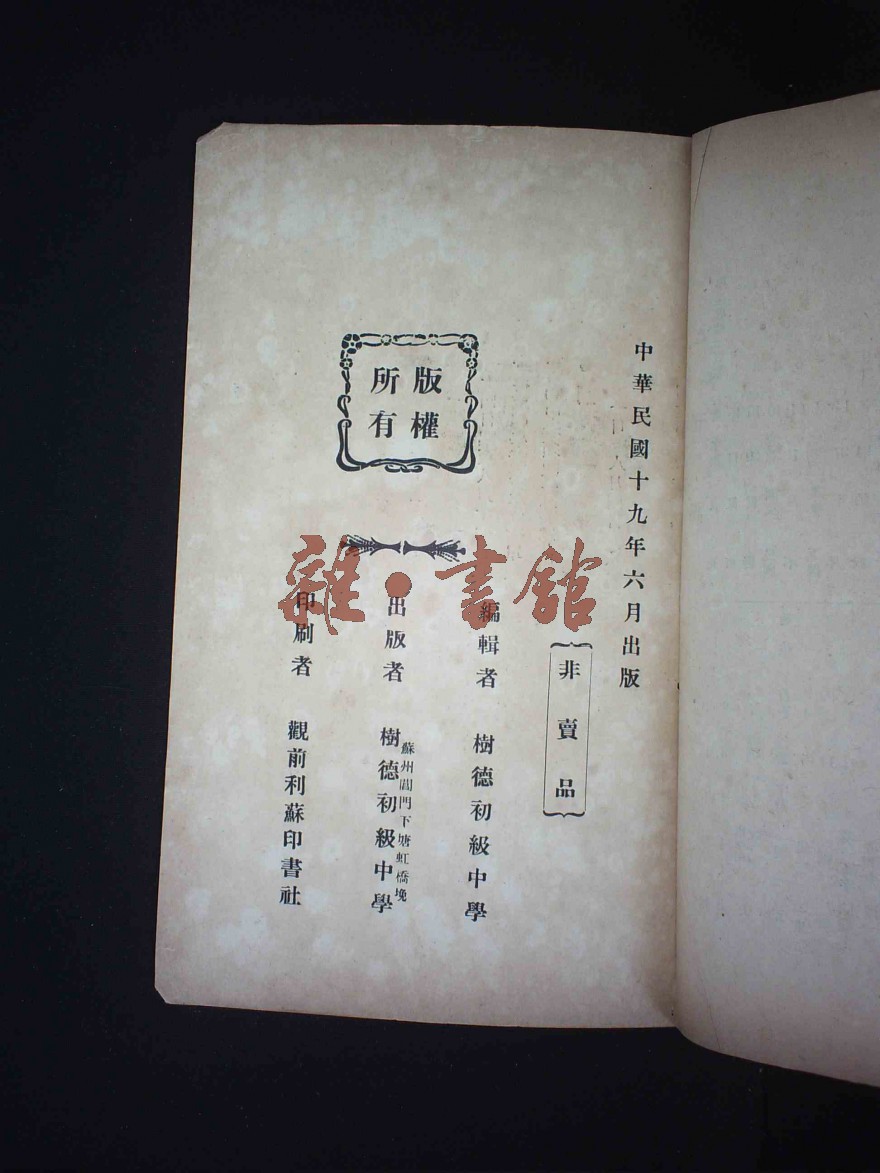 中華民國十九年六月出版
非賣品
編輯者 樹德初級中學
蘇州閶門下塘虹橋堍
出版者 樹德初級中學
印刷者 觀前利蘇印書社
版權
所有
雜·書館